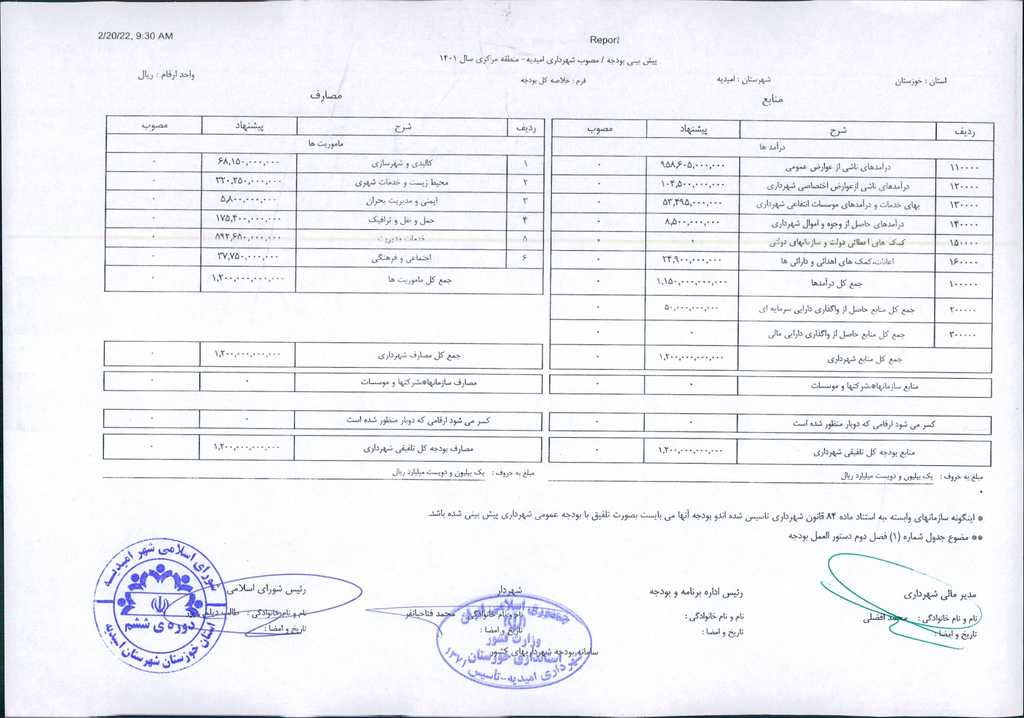 2/20/22, 9:30 AM
Report
پیش بینی بودجه / مصوب شهرداری امیدیه - منطقه مرکزی سال ۱۴۰۱
استان : خوزستان
شهرستان : امیدیه
فرم : خلاصه کل بودجه
واحد ارقام : ریال
منابع
ردیف شرح پیشنهاد مصوب
درآمد ها
۱۱۰۰۰۰ درآمدهای ناشی از عوارض عمومی ۹۵۸,۶۰۵,۰۰۰,۰۰۰ ۰
۱۲۰۰۰۰ درآمدهای ناشی ازعوارض اختصاصی شهرداری ۱۰۴,۵۰۰,۰۰۰,۰۰۰ ۰
۱۳۰۰۰۰ بهای خدمات و درآمدهای موسسات انتفاعی شهرداری ۵۳,۴۹۵,۰۰۰,۰۰۰ ۰
۱۴۰۰۰۰ درآمدهای حاصل از وجوه و اموال شهرداری ۸,۵۰۰,۰۰۰,۰۰۰ ۰
۱۵۰۰۰۰ کمک های اعطائی دولت و سازمانهای دولتی ۰ ۰
۱۶۰۰۰۰ اعانات،کمک های اهدائی و دارائی ها ۲۴,۹۰۰,۰۰۰,۰۰۰ ۰
۱۰۰۰۰۰ جمع کل درآمدها ۱,۱۵۰,۰۰۰,۰۰۰,۰۰۰ ۰
۲۰۰۰۰۰ جمع کل منابع حاصل از واگذاری دارایی سرمایه ای ۵۰,۰۰۰,۰۰۰,۰۰۰ ۰
۳۰۰۰۰۰ جمع کل منابع حاصل از واگذاری دارایی مالی ۰ ۰
جمع کل منابع شهرداری ۱,۲۰۰,۰۰۰,۰۰۰,۰۰۰ ۰
منابع سازمانها*،شرکتها و موسسات ۰ ۰
کسر می شود ارقامی که دوبار منظور شده است ۰ ۰
منابع بودجه کل تلفیقی شهرداری ۱,۲۰۰,۰۰۰,۰۰۰,۰۰۰ ۰
مبلغ به حروف : یک بیلیون و دویست میلیارد ریال
مصارف
ردیف شرح پیشنهاد مصوب
ماموریت ها
۱ کالبدی و شهرسازی ۶۸,۱۵۰,۰۰۰,۰۰۰ ۰
۲ محیط زیست و خدمات شهری ۳۲۰,۲۵۰,۰۰۰,۰۰۰ ۰
۳ ایمنی و مدیریت بحران ۵,۸۰۰,۰۰۰,۰۰۰ ۰
۴ حمل و نقل و ترافیک ۱۷۵,۴۰۰,۰۰۰,۰۰۰ ۰
خدمات مدیریت ۰
۶ اجتماعی و فرهنگی ۳۷,۷۵۰,۰۰۰,۰۰۰ ۰
جمع کل ماموریت ها ۱,۲۰۰,۰۰۰,۰۰۰,۰۰۰ ۰
جمع کل مصارف شهرداری ۱,۲۰۰,۰۰۰,۰۰۰,۰۰۰ ۰
مصارف سازمانها*،شرکتها و موسسات ۰ ۰
کسر می شود ارقامی که دوبار منظور شده است ۰ ۰
مصارف بودجه کل تلفیقی شهرداری ۱,۲۰۰,۰۰۰,۰۰۰,۰۰۰ ۰
مبلغ به حروف : یک بیلیون و دویست میلیارد ریال
* اینگونه سازمانهای وابسته ،به استناد ماده ۸۴ قانون شهرداری تاسیس شده اندو بودجه آنها می بایست بصورت تلفیق با بودجه عمومی شهرداری پیش بینی شده باشد.
** مضوع جدول شماره (۱) فصل دوم دستور العمل بودجه
مدیر مالی شهرداری
نام و نام خانوادگی : محمد افضلی
تاریخ و امضا :
رئیس اداره برنامه و بودجه
نام و نام خانوادگی :
تاریخ و امضا :
شهردار
نام و نام خانوادگی : محمد فتاحیانفر
تاریخ و امضا :
رئیس شورای اسلامی
نام و نام خانوادگی :
تاریخ و امضا :
سامانه بودجه شهرداریهای کشور
جمهوری اسلامی ایران
وزارت کشور
استانداری خوزستان
شهرداری امیدیه - تأسیس ۱۳۷۱
شورای اسلامی شهر امیدیه
دوره ی ششم
استان خوزستان شهرستان امیدیه